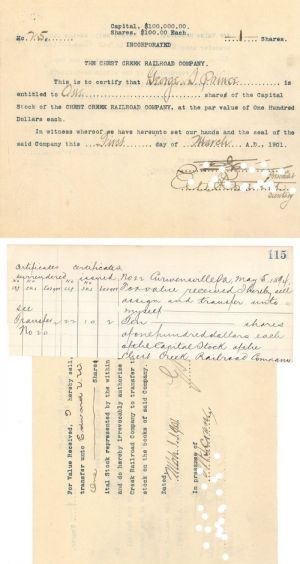 Capital, $100,000.00.
Shares, $100.00 Each.
No. 725. 1 Shares.
INCORPORATED
THE CHEST CREEK RAILROAD COMPANY.
This is to certify that George D. is
entitled to One shares of the Capital
Stock of the CHEST CREEK RAILROAD COMPANY, at the par value of One Hundred
Dollars each.
In witness whereof we have hereunto set our hands and the seal of the
said Company this First day of March A.D., 1901.
President
Secretary
115
Certificates Certificates
surrendered issued
No 22 Curwensville Pa, May 5, 1894
For value received I hereby sell
assign and transfer unto
see
myself
Transfer 22 10 2 Ten shares
No 20 of one hundred dollars each
of the Capital Stock of the
Chest Creek Railroad Company
For Value Received, I hereby sell,
transfer unto Edward
One Shares
ital Stock represented by the within
and do hereby irrevocably authorize
Creek Railroad Company to transfer t
stock on the books of said Company.
Dated
In presence of